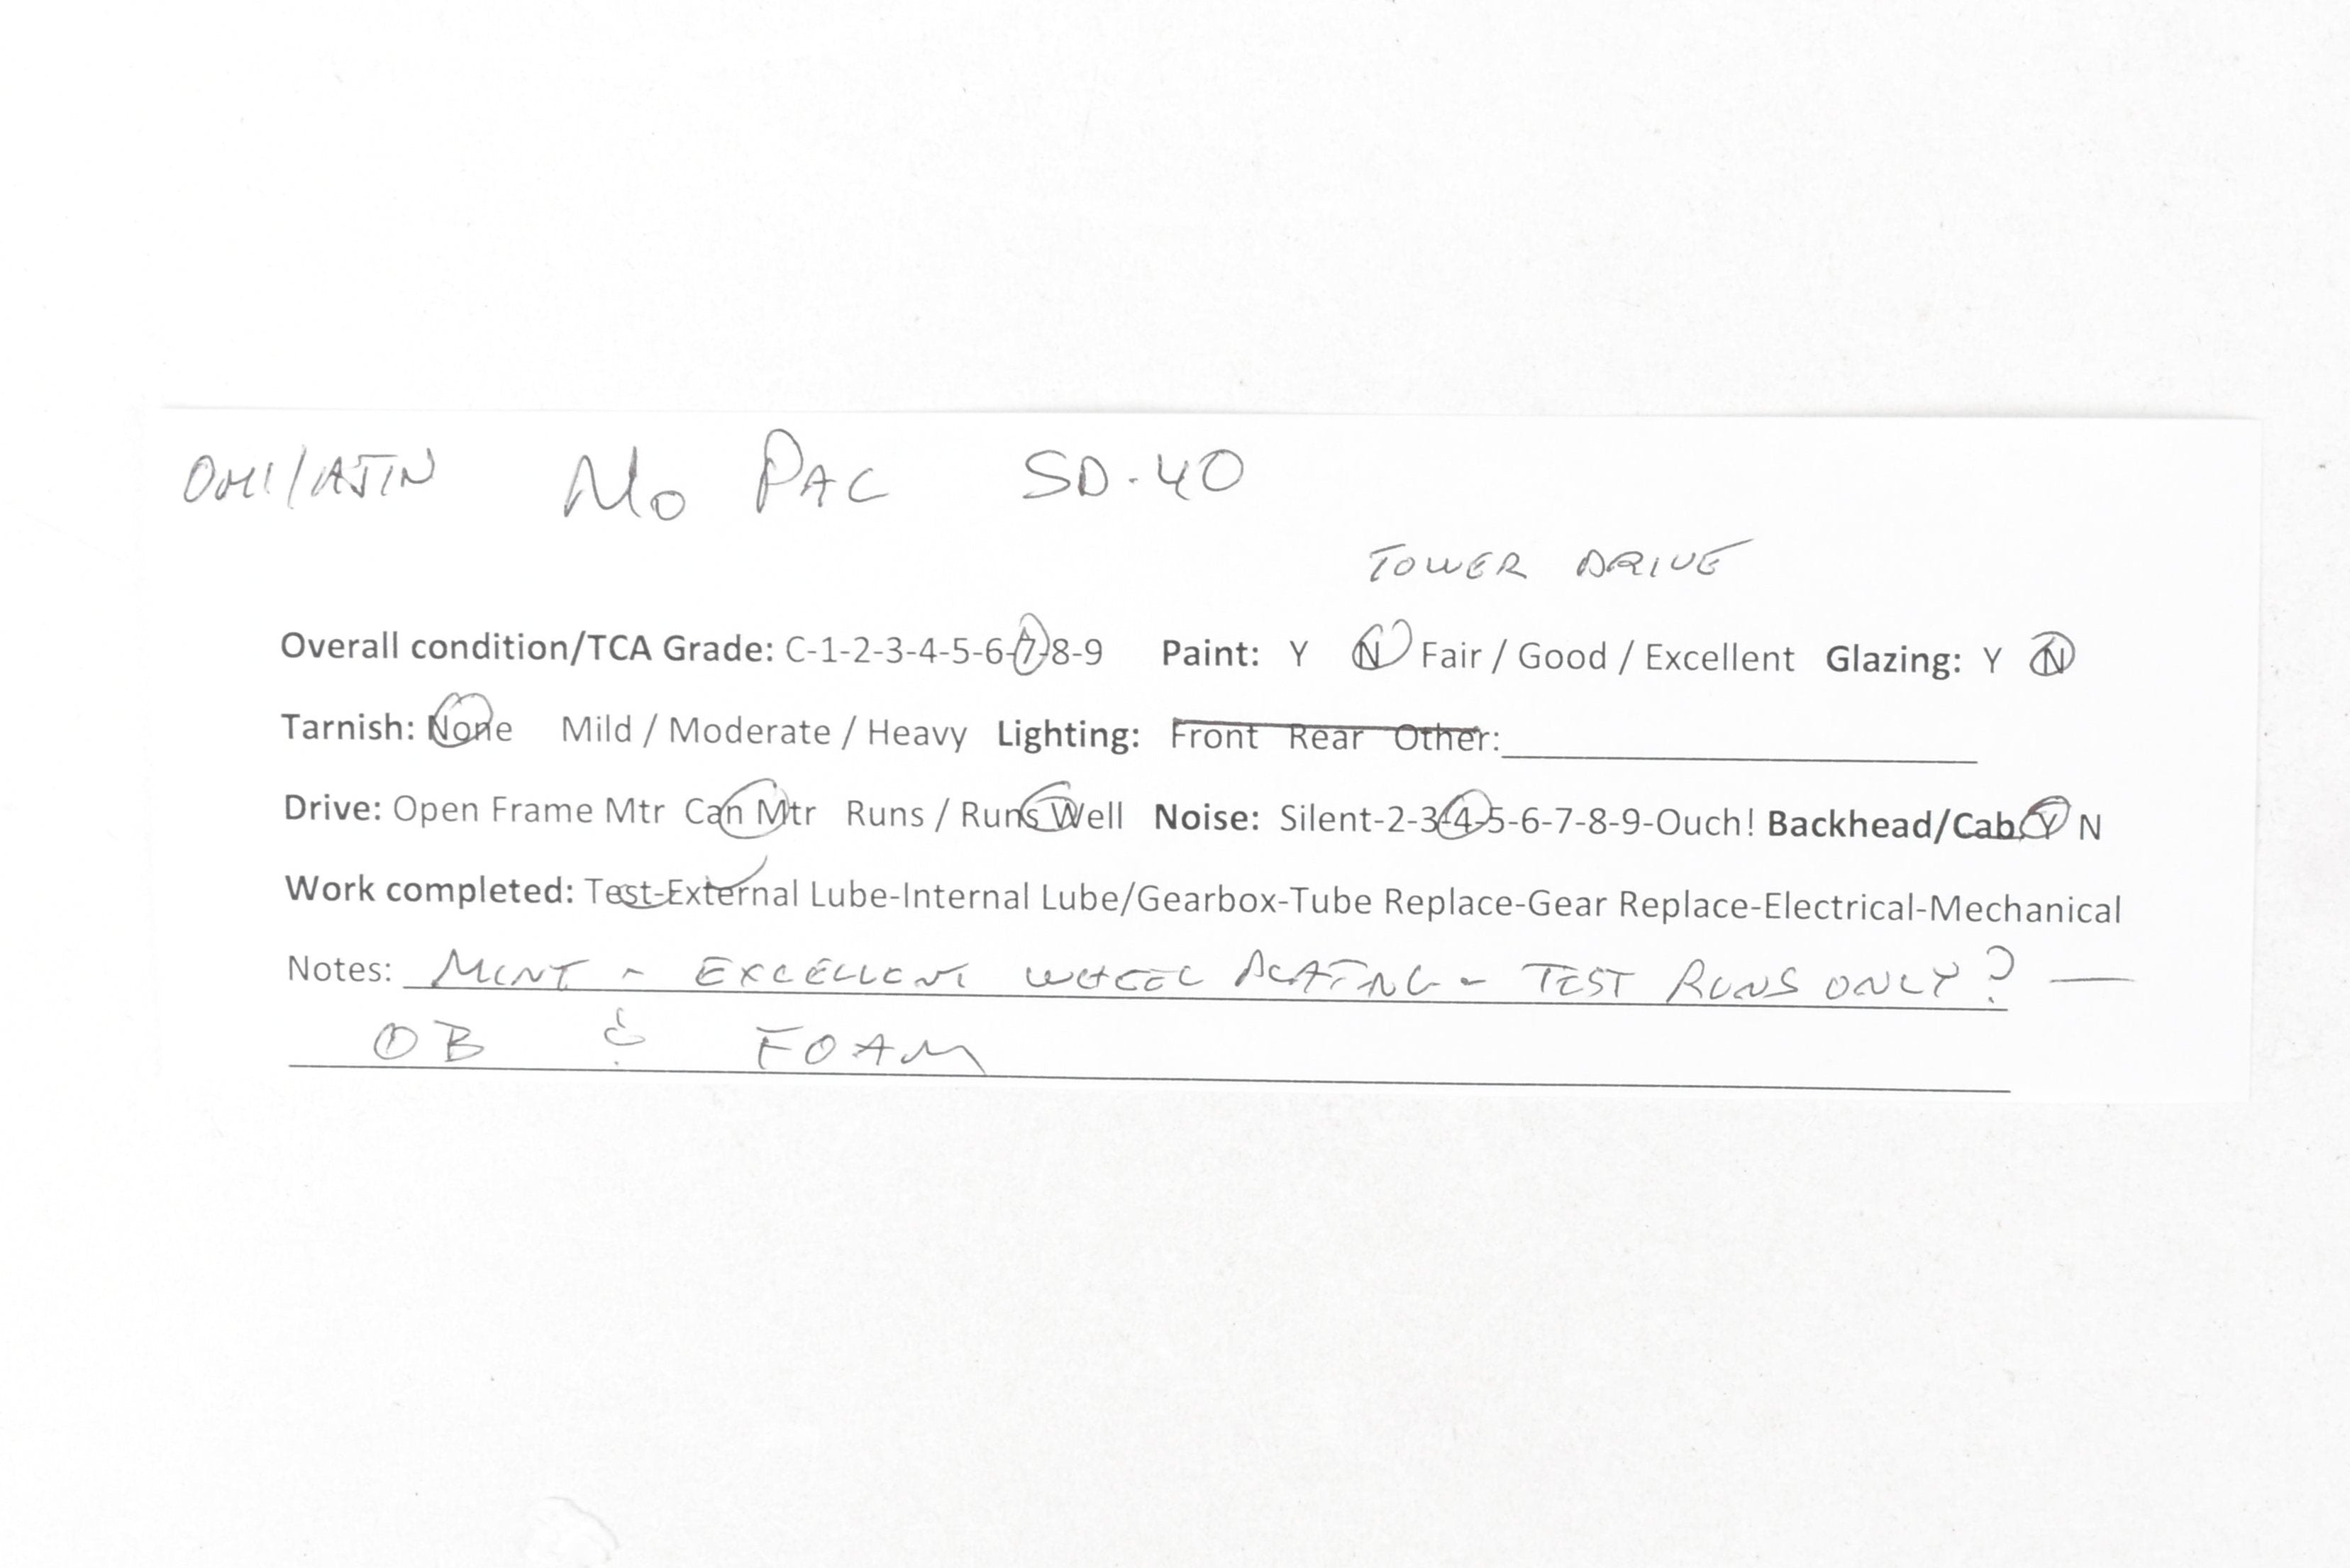 OMI/AJIN Mo PAC SD-40
TOWER DRIVE
Overall condition/TCA Grade: C-1-2-3-4-5-6-7-8-9 Paint: Y N Fair / Good / Excellent Glazing: Y N
Tarnish: None Mild / Moderate / Heavy Lighting: Front Rear Other:
Drive: Open Frame Mtr Can Mtr Runs / Runs Well Noise: Silent-2-3-4-5-6-7-8-9-Ouch! Backhead/Cab: Y N
Work completed: Test-External Lube-Internal Lube/Gearbox-Tube Replace-Gear Replace-Electrical-Mechanical
Notes: MINT - EXCELLENT WHEEL PLATING - TEST RUNS ONLY? —
OB & FOAM